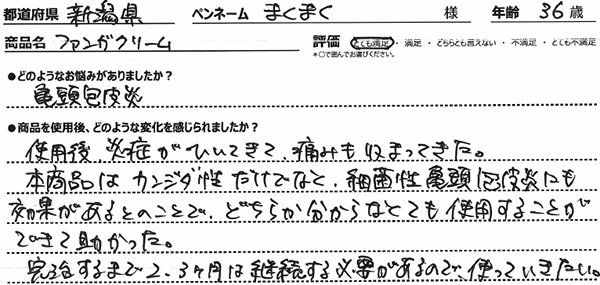 都道府県 新潟県 ペンネーム まくまく 様 年齢 36歳
商品名 ファンガクリーム 評価 とても満足・満足・どちらとも言えない・不満足・とても不満足
*○で囲んでお選びください。
●どのようなお悩みがありましたか？
亀頭包皮炎
●商品を使用後、どのような変化を感じられましたか？
使用後、炎症がひいてきて、痛みも収まってきた。
本商品はカンジダ性だけでなく、細菌性亀頭包皮炎にも
効果があるとのことで、どちらか分からなくても使用することが
できて助かった。
完治するまで2、3ヶ月は継続する必要があるので、使っていきたい。